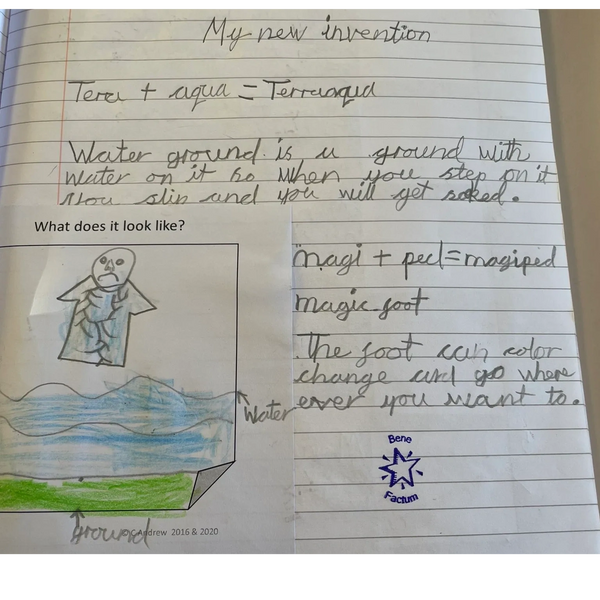 My new invention
Tera + aqua = Terraaqua
Water ground is a ground with
water on it so when you step on it
you slip and you will get soked.
What does it look like?
magi + ped = magiped
magic foot
The foot can color
change and go where
ever you want to.
Water
Bene
Factum
ground
Andrew 2016 & 2020